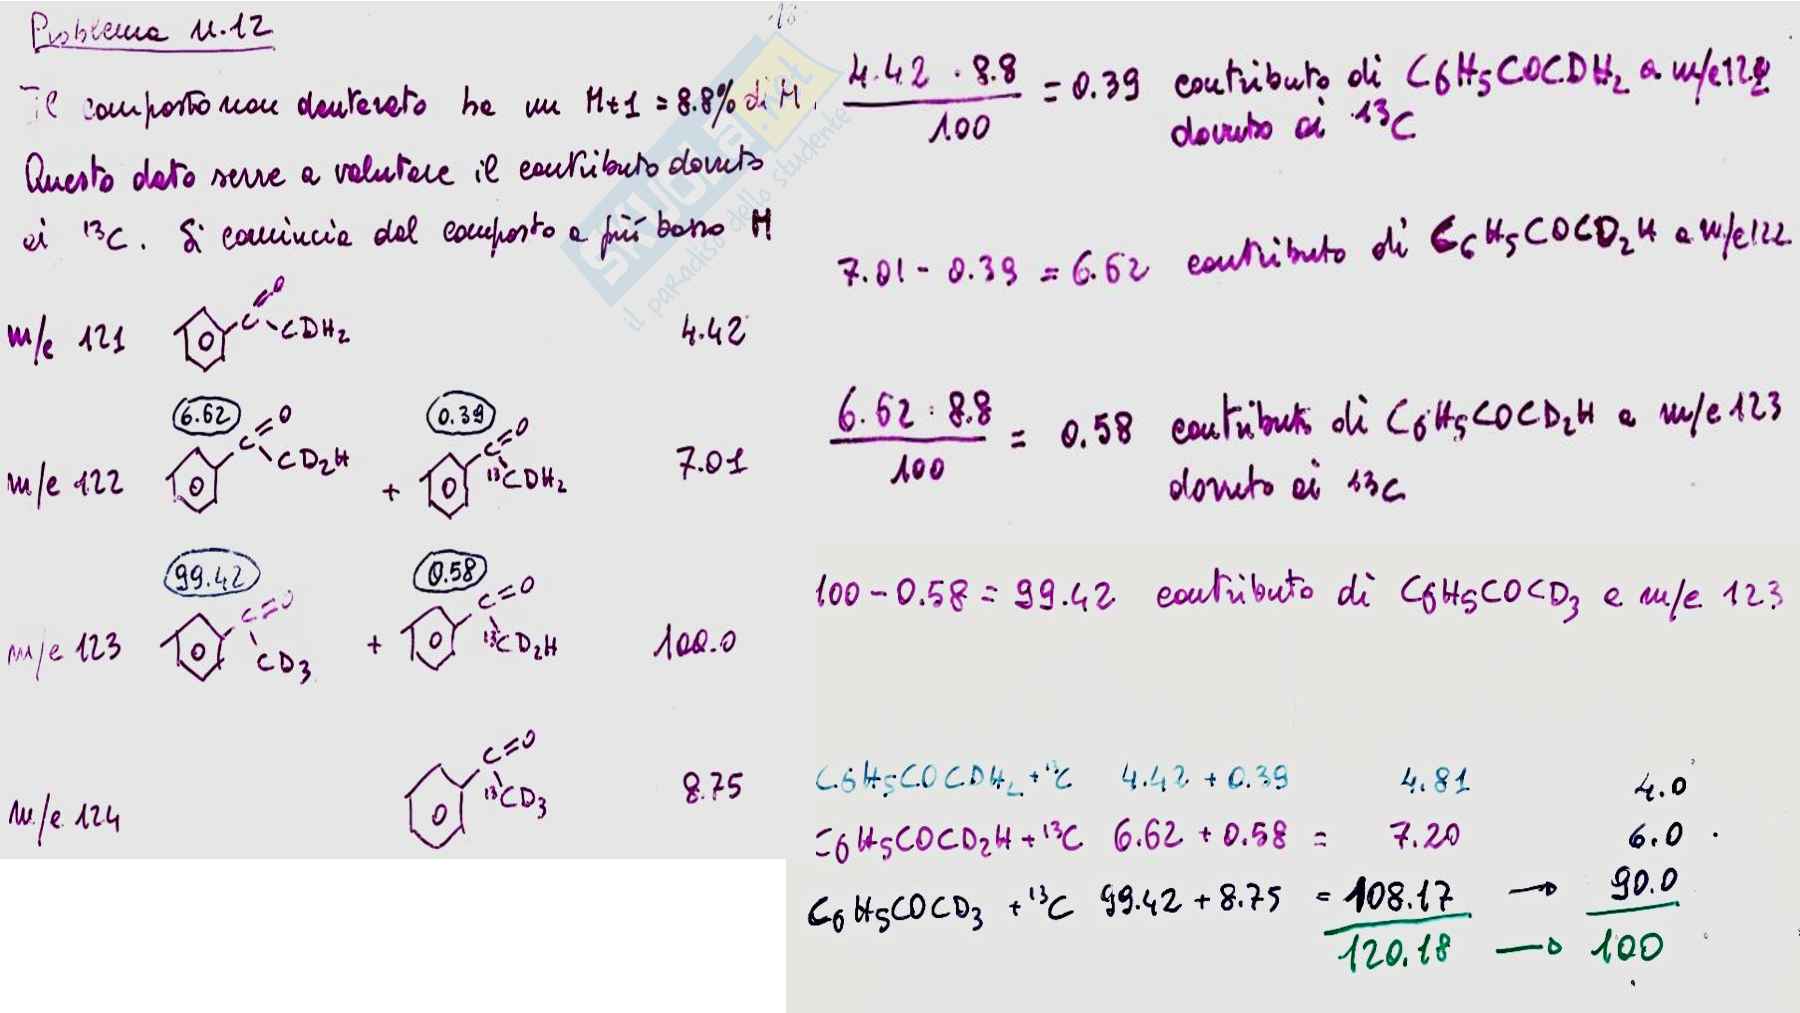 Problema n.12
Il composto non deuterato ha un M+1 = 8.8% di M.
Questo dato serve a valutare il contributo dovuto
ai 13C. Si comincia dal composto a più basso M
m/e 121 C=O CDH2 4.42
m/e 122 6.62 C=O CD2H + 0.39 C=O 13CDH2 7.01
m/e 123 99.42 C=O CD3 + 0.58 C=O 13CD2H 100.0
m/e 124 C=O 13CD3 8.75
4.42 · 8.8 / 100 = 0.39 contributo di C6H5COCDH2 a m/e 122
dovuto ai 13C
7.01 - 0.39 = 6.62 contributo di C6H5COCD2H a m/e 122
6.62 · 8.8 / 100 = 0.58 contributo di C6H5COCD2H a m/e 123
dovuto ai 13C
100 - 0.58 = 99.42 contributo di C6H5COCD3 a m/e 123
C6H5COCDH2 + 13C 4.42 + 0.39 4.81 4.0
C6H5COCD2H + 13C 6.62 + 0.58 = 7.20 6.0
C6H5COCD3 + 13C 99.42 + 8.75 = 108.17 → 90.0
120.18 → 100
SKUOLA.net
il paradiso dello studente